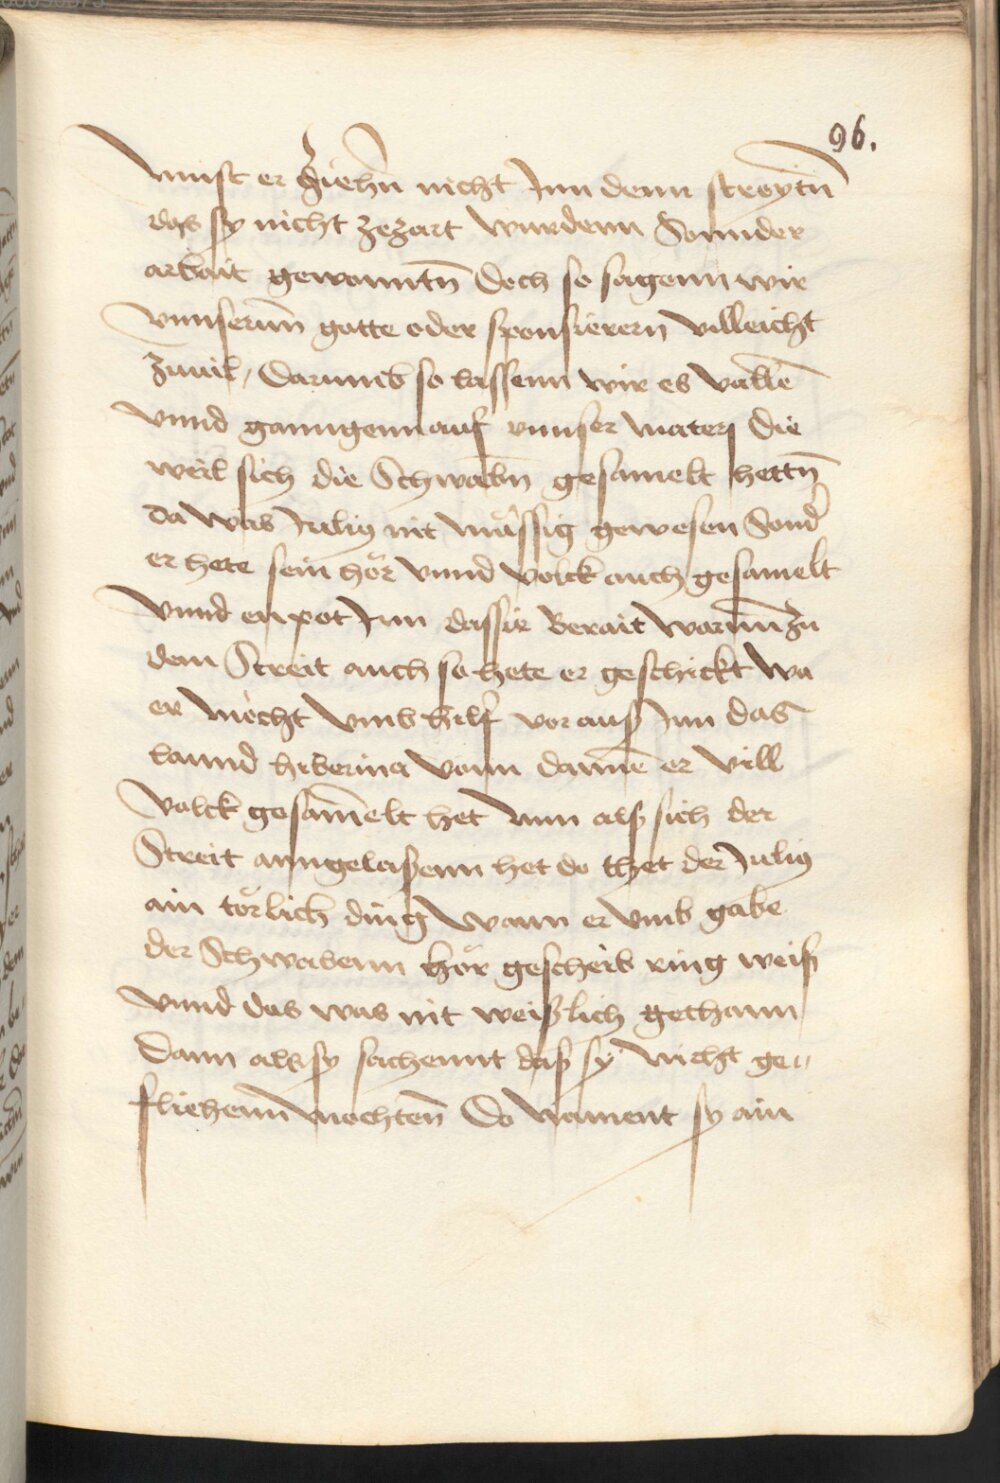 96.
must er ziehen nicht Inn denn streytn̄
das sy nicht zezart wurdenn Sonnder
arbait gewonntn̄ doch so sagenn wir
vnnserm̄ gotte oder sponsierern villeicht
zuuil, darumb so lassenn wir es vallē
vnnd ganngenn auf vnnser matery die
weil sich die Schwabn̄ gesamelt hettn̄
da was Julius nit mässig gewesen Sond̄
er hete sein hör vnnd volck auch gesamelt
vnnd enpot Inn das sie Berait warnn zu
dem Streit auch so hete er geschickt wa
er mocht vmb hilf vorauß Inn das
lannd hiberina vonn dannē er vill
volck gesam̄elt het nun alß sich der
Streit anngelaßenn het do thet der Julius
ain törlich ding wann er vmb gabe
der Schwabenn hör gescheib ring weiß
vnnd das was nit weißlich gethann
dann als sy sachennt daß sy nicht ge„
fliehenn mochten̄ Do nament sy ain